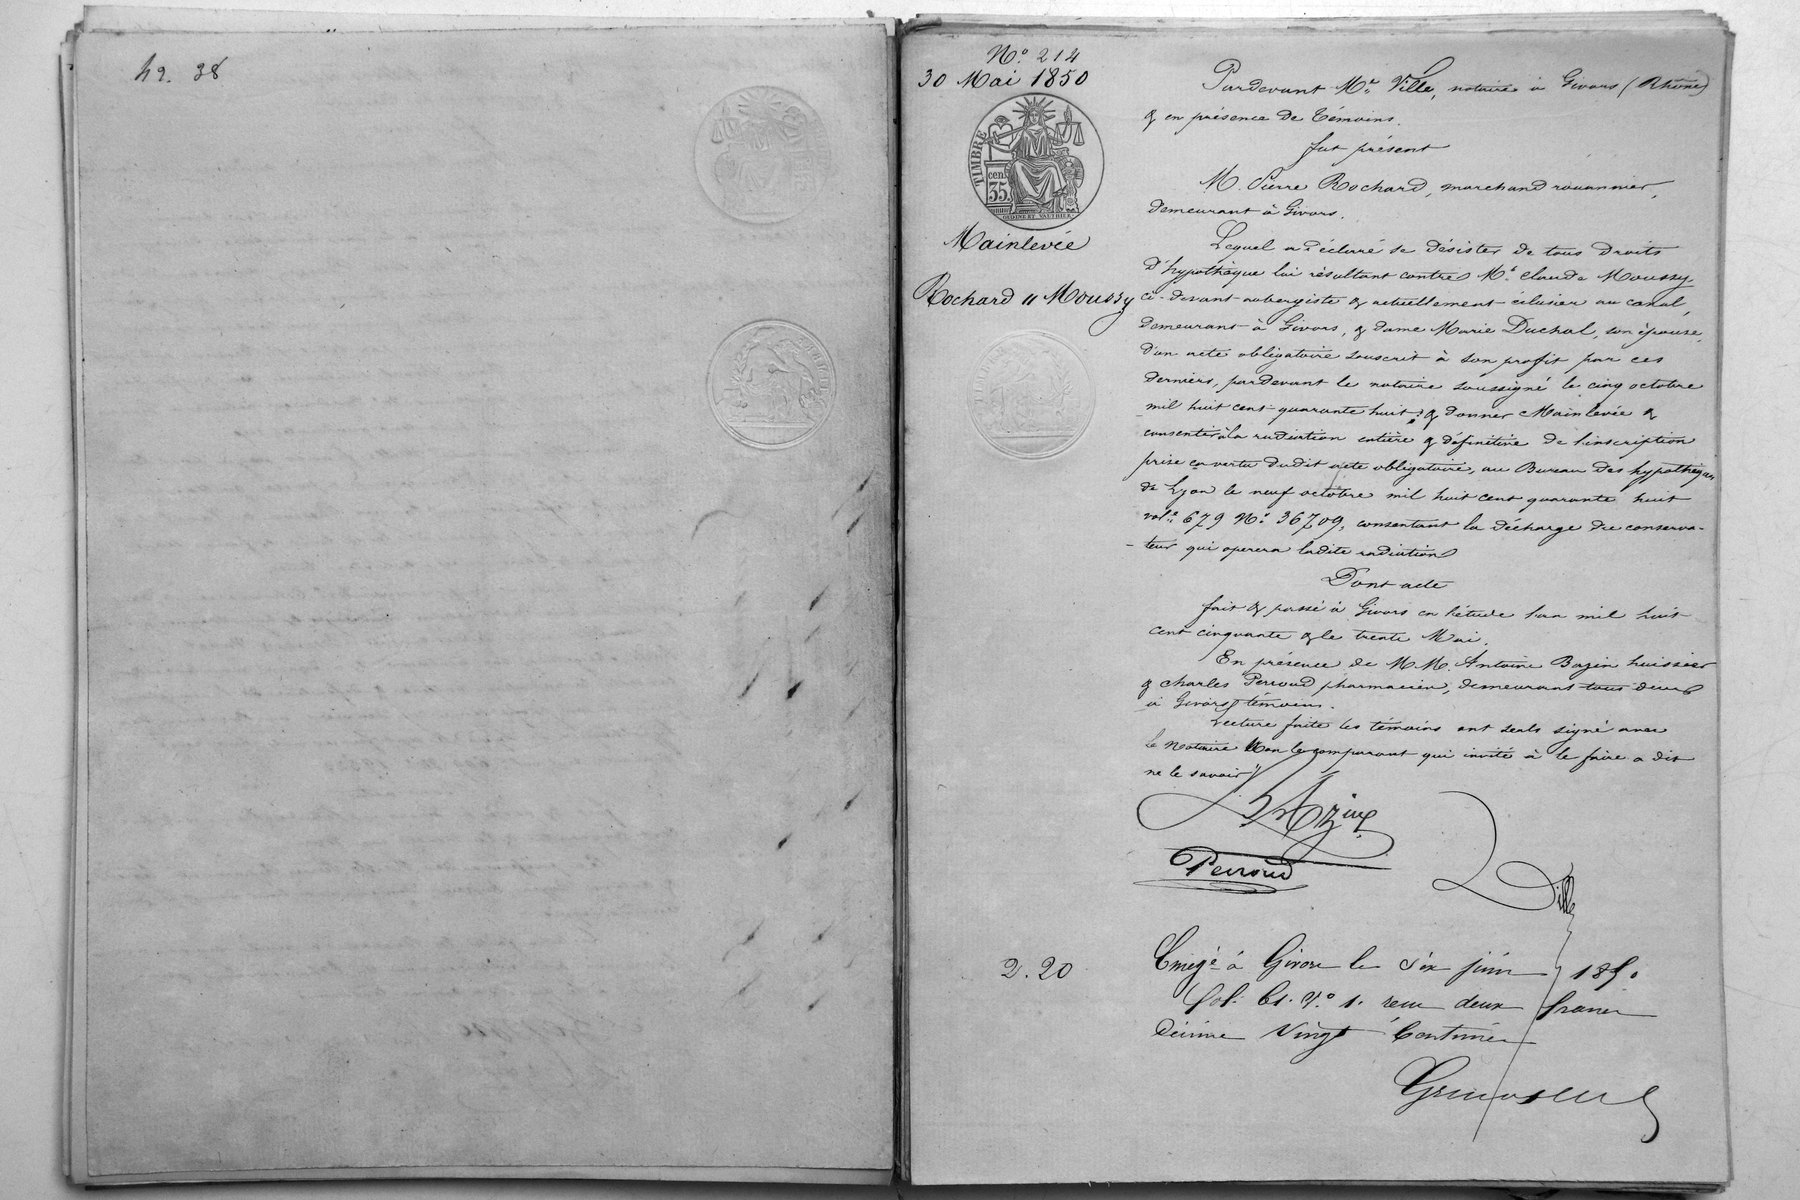 h2. 38
N.° 214
30 Mai 1850
TIMBRE
cen. 35.
OUDINE ET VAUTHIER
Mainlevée
Rochard // Moussy
Pardevant M.e Ville, notaire à Givors (Rhône)
& en présence de témoins.
fut présent
M. Pierre Rochard, marchand rouannier,
demeurant à Givors.
Lequel a déclaré se désister de tous droits
d'hypothèque lui résultant contre M.r Claude Moussy
ci-devant aubergiste & actuellement éclusier au canal,
demeurant à Givors, & dame Marie Duchal, son épouse,
d'un acte obligatoire souscrit à son profit par ces
derniers, pardevant le notaire soussigné le cinq octobre
mil huit cent quarante huit; & donner Mainlevée &
consentir à la radiation entière & définitive de l'inscription
prise en vertu dudit acte obligatoire, au Bureau des hypothèques
de Lyon le neuf octobre mil huit cent quarante huit
vol.e 679 N.° 36709, consentant la décharge du conserva-
-teur qui opérera ladite radiation
Dont acte
fait & passé à Givors en l'étude l'an mil huit
cent cinquante & le trente Mai.
En présence de M.M. Antoine Bazin huissier
& Charles Perroud pharmacien, demeurant tous deux
à Givors témoins.
Lecture faite les témoins ont seuls signé avec
le Notaire Non le comparant qui invité à le faire a dit
ne le savoir
Bazin
Perroud
Ville
2. 20
Enregé à Givors le six juin 1850
fol. 61. V.° 1. reçu deux francs
Décime Vingt Centimes